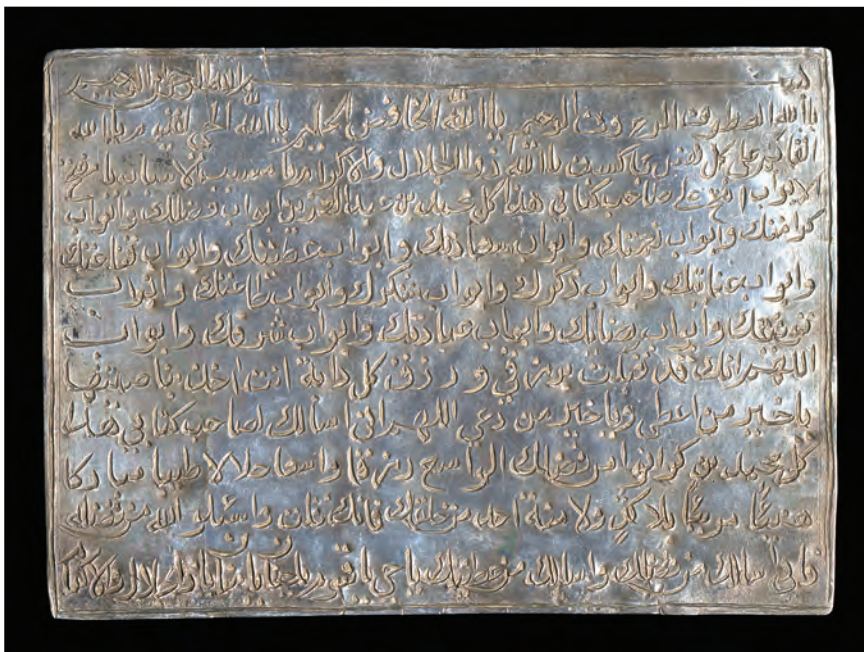 بسم الله الرحمن الرحيم
يا الله العطوف الرءوف الرحيم يا الله الخافض الحليم يا الله الحي القيوم يا الله
على كل نفس بما كسبت يا الله ذو الجلال والاكرام يا مسبب الاسباب يا مفتح
الابواب افتح صاحب كتابي هذا ابواب فضلك وابواب
كرامتك وابواب نعمتك وابواب سعادتك وابواب عطيتك وابواب
وابواب عنايتك وابواب ذكرك وابواب شكرك وابواب طاعتك وابواب
وابواب وابواب وابواب شرفك وابواب
اللهم انك قد برزقي ورزق كل دابة انت اخذ بناصيتها
يا خير من اعطى ويا خير من دعي اللهم اني اسالك لصاحب كتابي هذا
بن من فضلك الواسع رزقا واسعا حلالا طيبا مباركا
هنيئا مريئا بلا كد ولا منة احد من خلقك فانك قلت واسئلو الله من فضله
اسالك من فضلك واسالك من عطيتك يا حي يا قيوم يا يا ذا الجلال والاكرام